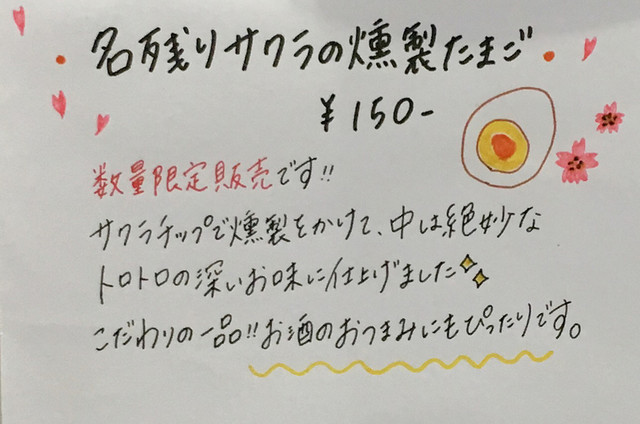 名残りサクラの燻製たまご
¥150-
数量限定販売です!!
サクラチップで燻製をかけて、中は絶妙な
トロトロの深いお味に仕上げました
こだわりの一品!!お酒のおつまみにもぴったりです。